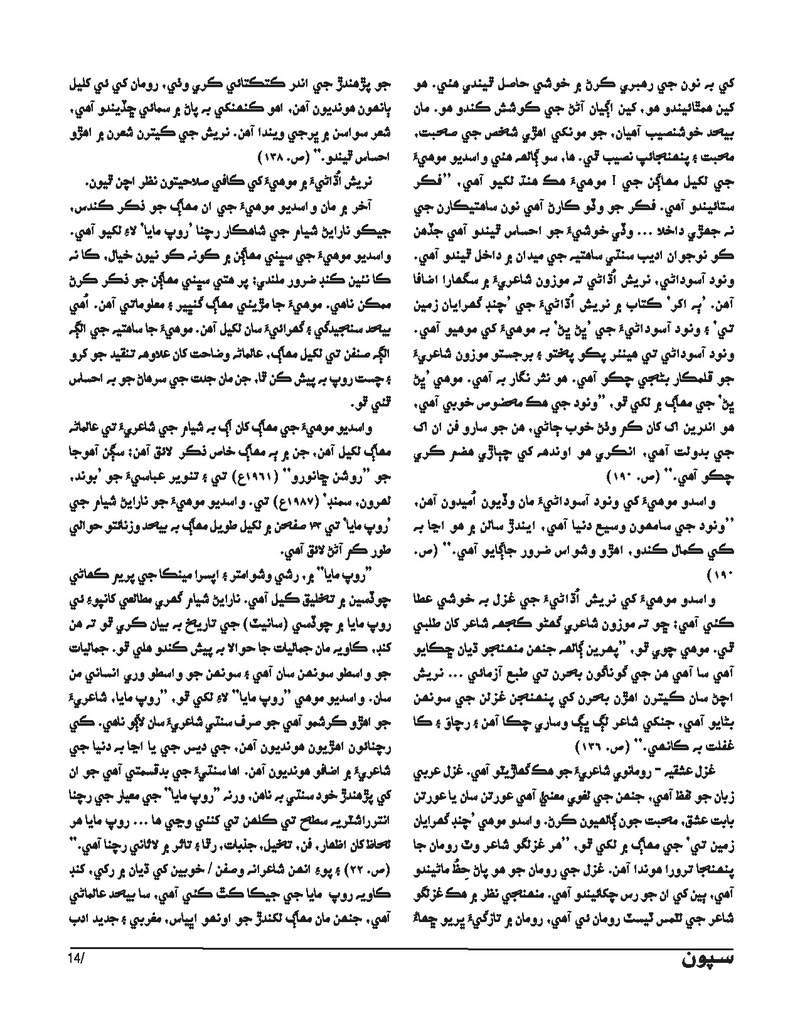 کي به نون جي رهبري ڪرڻ ۾ خوشي حاصل ٿيندي هئي. هو
کين همٿائيندو هو، کين اڳيان آڻڻ جي ڪوشش ڪندو هو. مان
بيحد خوشنصيب آهيان، جو مونکي اهڙي شخص جي صحبت،
محبت ۽ پنهنجائپ نصيب ٿي. ها، سو ڳالهه هئي واسديو موهيءَ
جي لکيل مهاڳن جي I موهيءَ هڪ هنڌ لکيو آهي، ”فڪر
ستائيندو آهي. فڪر جو وڏو ڪارڻ آهي نون ساهتيڪارن جي
نه جهڙي داخلا ... وڏي خوشيءَ جو احساس ٿيندو آهي جڏهن
ڪو نوجوان اديب سنڌي ساهتيه جي ميدان ۾ داخل ٿيندو آهي.
ونود آسوداڻي، نريش اُڌاڻي ته موزون شاعريءَ ۾ سگهارا اضافا
آهن. ’ٻه اکر‘ ڪتاب ۾ نريش اُڌاڻيءَ جي ’چنڊ گهرايان زمين
تي‘ ۽ ونود آسوداڻيءَ جي ’پڻ پڻ‘ به موهيءَ کي موهيو آهي.
ونود آسوداڻي ته هينئر پڪو پختو ۽ برجستو موزون شاعريءَ
جو قلمڪار بڻجي چڪو آهي. هو نثر نگار به آهي. موهي ’پڻ
پڻ‘ جي مهاڳ ۾ لکي ٿو، ”ونود جي هڪ مخصوص خوبي آهي،
هو اندرين اک کان ڪم وٺڻ خوب ڄاڻي، هن جو سارو فن ان اک
جي بدولت آهي، انڪري هو اوندهه کي چٻاڙي هضم ڪري
چڪو آهي.“ (ص. ١٩٠)
واسدو موهيءَ کي ونود آسوداڻيءَ مان وڏيون اُميدون آهن،
”ونود جي سامهون وسيع دنيا آهي، ايندڙ سالن ۾ هو اڃا به
ڪي ڪمال ڪندو، اهڙو وشواس ضرور جاڳايو آهي.“ (ص.
١٩٠)
واسدو موهيءَ کي نريش اُڌاڻيءَ جي غزل به خوشي عطا
ڪئي آهي؛ ڇو ته موزون شاعري گهڻو ڪجهه شاعر کان طلبي
ٿي. موهي چوي ٿو، ”پهرين ڳالهه جنهن منهنجو ڌيان ڇڪايو
آهي سا آهي هن جي گوناگون بحرن تي طبع آزمائي ... نريش
اڄڻ سان ڪيترن اهڙن بحرن کي پنهنجن غزلن جي سونهن
بڻايو آهي، جنکي شاعر لڳ ڀڳ وساري چڪا آهن ۽ رچاءَ ۽ ڪا
غفلت به ڪانهي.“ (ص. ١٣٦)
غزل عشقيه - رومانوي شاعريءَ جو هڪ گهاڙيٽو آهي. غزل عربي
زبان جو لفظ آهي، جنهن جي لغوي معنيٰ آهي عورتن سان يا عورتن
بابت عشق، محبت جون ڳالهيون ڪرڻ. واسدو موهي ’چنڊ گهرايان
زمين تي‘ جي مهاڳ ۾ لکي ٿو، ”هر غزلگو شاعر وٽ رومان جا
پنهنجا ترورا هوندا آهن. غزل جي رومان جو هو پاڻ حِظُ ماڻيندو
آهي، ٻين کي ان جو رس چکائيندو آهي. منهنجي نظر ۾ هڪ غزلگو
شاعر جي ٽئمس ٽيسٽ رومان ئي آهي، رومان ۾ تازگيءَ ڀريو ڇهاءُ
جو پڙهندڙ جي اندر ڪتڪتائي ڪري وٺي، رومان کي ئي کليل
ٻانهون هونديون آهن، اهو ڪنهنکي به پاڻ ۾ سمائي ڇڏيندو آهي،
شعر سواسن ۾ ڀرجي ويندا آهن. نريش جي ڪيترن شعرن ۾ اهڙو
احساس ٿيندو.“ (ص. ١٣٨)
نريش اُڌاڻيءَ ۾ موهيءَ کي ڪافي صلاحيتون نظر اچن ٿيون.
آخر ۾ مان واسديو موهيءَ جي ان مهاڳ جو ذڪر ڪندس،
جيڪو نارايڻ شيام جي شاهڪار رچنا ’روپ مايا‘ لاءِ لکيو آهي.
واسديو موهيءَ جي سڀني مهاڳن ۾ ڪونه ڪو نيون خيال، ڪا نه
ڪا نئين ڪنڊ ضرور ملندي؛ پر هتي سڀني مهاڳن جو ذڪر ڪرڻ
ممڪن ناهي. موهيءَ جا مڙيئي مهاڳ گنڀير ۽ معلوماتي آهن. اُهي
بيحد سنجيدگي ۽ گهرائيءَ سان لکيل آهن. موهيءَ جا ساهتيه جي الڳه
الڳه صنفن تي لکيل مهاڳ، عالماڻه وضاحت کان علاوهه تنقيد جو کرو
۽ چست روپ به پيش ڪن ٿا، جن مان جدت جي سرهاڻ جو به احساس
ٿئي ٿو.
واسديو موهيءَ جي مهاڳ کان اڳ به شيام جي شاعريءَ تي عالماڻه
مهاڳ لکيل آهن، جن ۾ ٻه مهاڳ خاص ذڪر لائق آهن؛ سڳن آهوجا
جو ”روشن ڇانورو“ (١٩٦١ع) تي ۽ تنوير عباسيءَ جو ’بوند،
لهرون، سمنڊ‘ (١٩٨٧ع) تي. واسديو موهيءَ جو نارايڻ شيام جي
’روپ مايا‘ تي ٦٣ صفحن ۾ لکيل طويل مهاڳ به بيحد وزنائتو حوالي
طور ڪم آڻڻ لائق آهي.
”روپ مايا“ ۾، رشي وشوامتر ۽ اپسرا مينڪا جي پريم ڪهاڻي
چوڏسين ۾ تخليق ڪيل آهي. نارايڻ شيام گهري مطالعي کانپوءِ ئي
روپ مايا ۾ چوڏسي (سانيٽ) جي تاريخ به بيان ڪري ٿو ته هن
کنڊ، ڪاويه مان جماليات جا حوالا به پيش ڪندو هلي ٿو. جماليات
جو واسطو سونهن سان آهي ۽ سونهن جو واسطو وري انساني من
سان. واسديو موهي ”روپ مايا“ لاءِ لکي ٿو، ”روپ مايا، شاعريءَ
جو اهڙو ڪرشمو آهي جو صرف سنڌي شاعريءَ سان لاڳو ناهي. ڪي
رچنائون اهڙيون هونديون آهن، جي ديس جي يا اڃا به دنيا جي
شاعريءَ ۾ اضافو هونديون آهن. اها سنڌيءَ جي بدقسمتي آهي جو ان
کي پڙهندڙ خود سنڌي به ناهن، ورنه ”روپ مايا“ جي معيار جي رچنا
انترراشٽريه سطح تي کلهن تي کنئي وڃي ها ... روپ مايا هر
لحاظ کان اظهار، فن، تخيل، جذبات، رقا ۽ تاثر ۾ لاثاني رچنا آهي.“
(ص. ٢٢) ۽ پوءِ انهن شاعرانه وصفن / خوبين کي ڌيان ۾ رکي، کنڊ
ڪاويه روپ مايا جي جيڪا ڪٿ ڪئي آهي، سا بيحد عالماڻي
آهي، جنهن مان مهاڳ لکندڙ جو اونهو اڀياس، مغربي ۽ جديد ادب
14/
سپون